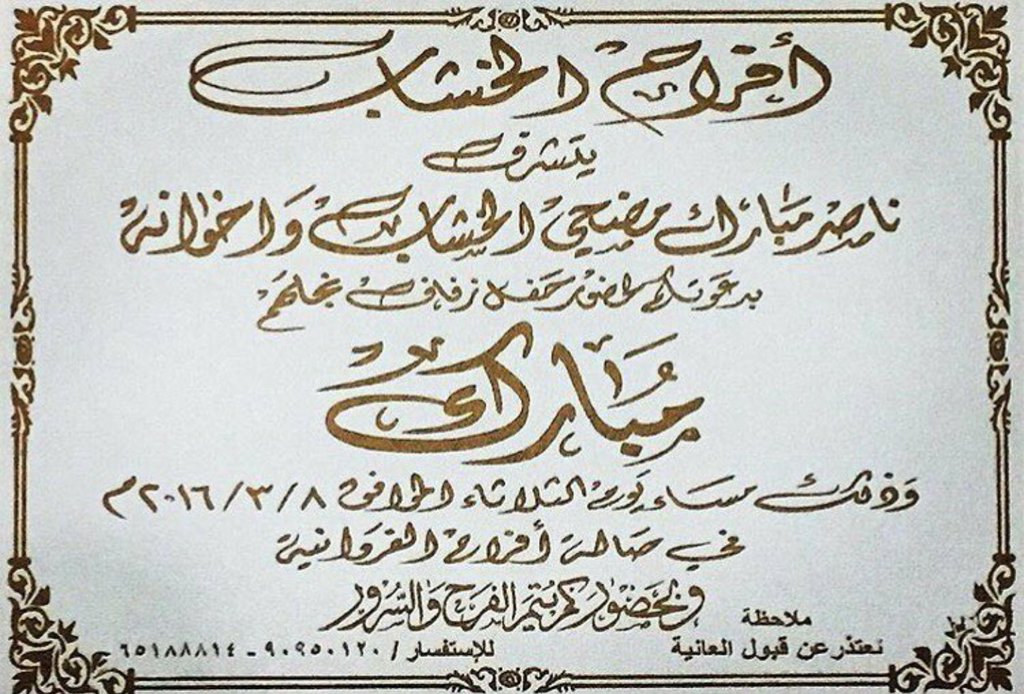 أفراح الخشاب
يتشرف
ناصر مبارك مضحي الخشاب واخوانه
بدعوتكم لحضور حفل زفاف نجلهم
مُبَارك
وَذلك مساء يوم الثلاثاء الموافق ٢٠١٦/٣/٨م
في صالة أفراح الفروانية
وبحضوركم يتم الفرح والسرور
ملاحظة
نعتذر عن قبول العانية
للإستفسار / ٩٠٩٥٠١٢٠ - ٦٥١٨٨٨١٤